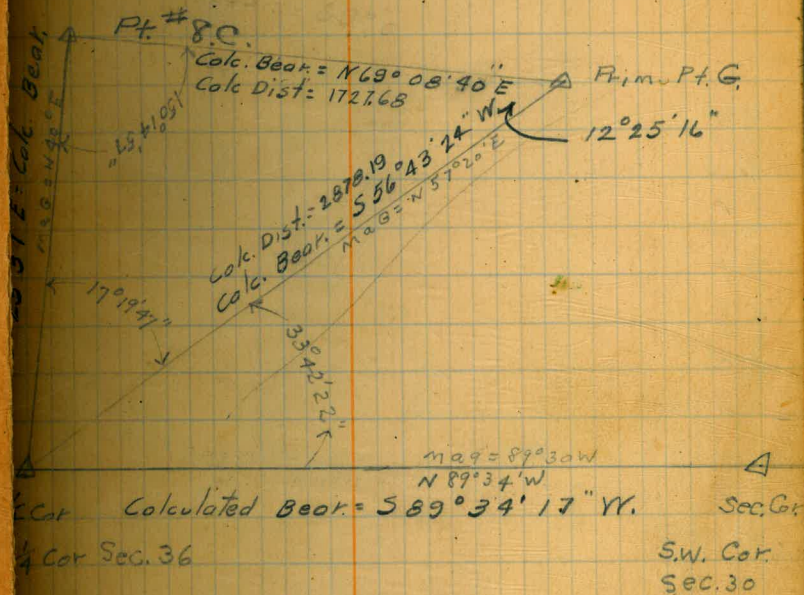 Pt. #8.C.
Calc. Bear. = N 69° 08' 40" E
Calc Dist = 1727.68
Prim. Pt. G.
12° 25' 16"
150° 14' 57"
Calc. Bear.
MaG = N 40° E
Calc. Dist. = 2878.19
Calc. Bear. = S 56° 43' 24" W.
MaG = N 57° 20' E
17° 19' 47"
33° 42' 22"
mag = 89° 30 W
N 89° 34' W
Cor
Calculated Bear. = S 89° 34' 17" W.
Sec. Cor
1/4 Cor Sec. 36
S.W. Cor.
Sec. 30